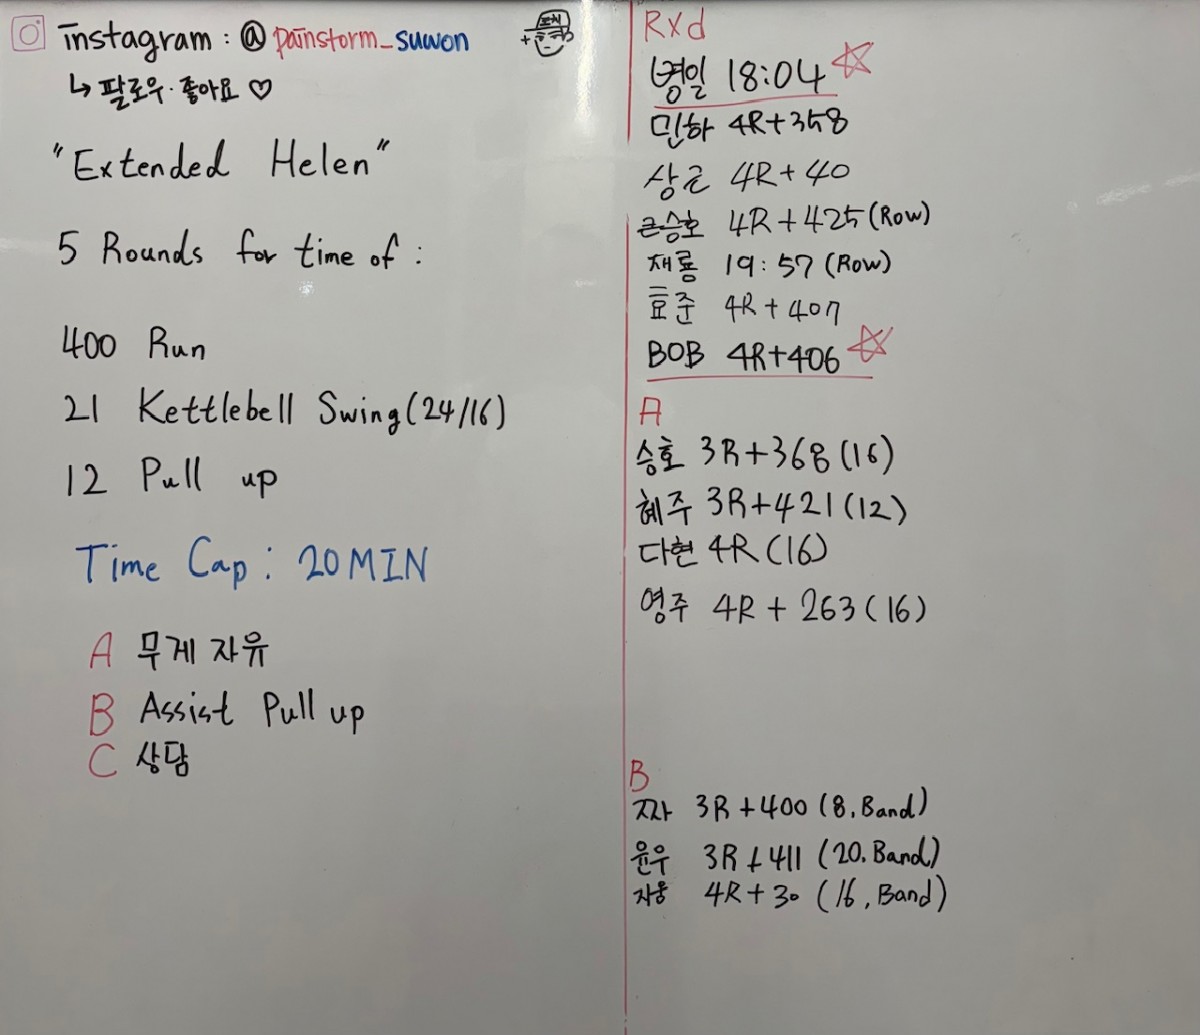 instagram : @painstorm_suwon
↳ 팔로우·좋아요 ♡
"Extended Helen"
5 Rounds for time of :
400 Run
21 Kettlebell Swing(24/16)
12 Pull up
Time Cap : 20MIN
A 무게 자유
B Assist Pull up
C 상담
Rxd
병일 18:04
민하 4R+358
상근 4R+40
큰승호 4R+425(Row)
재룡 19:57(Row)
효준 4R+407
BOB 4R+406
A
승호 3R+368(16)
혜주 3R+421(12)
다현 4R(16)
영주 4R+263(16)
B
3R+400 (8, Band)
윤우 3R+411 (20. Band)
자용 4R+30 (16, Band)